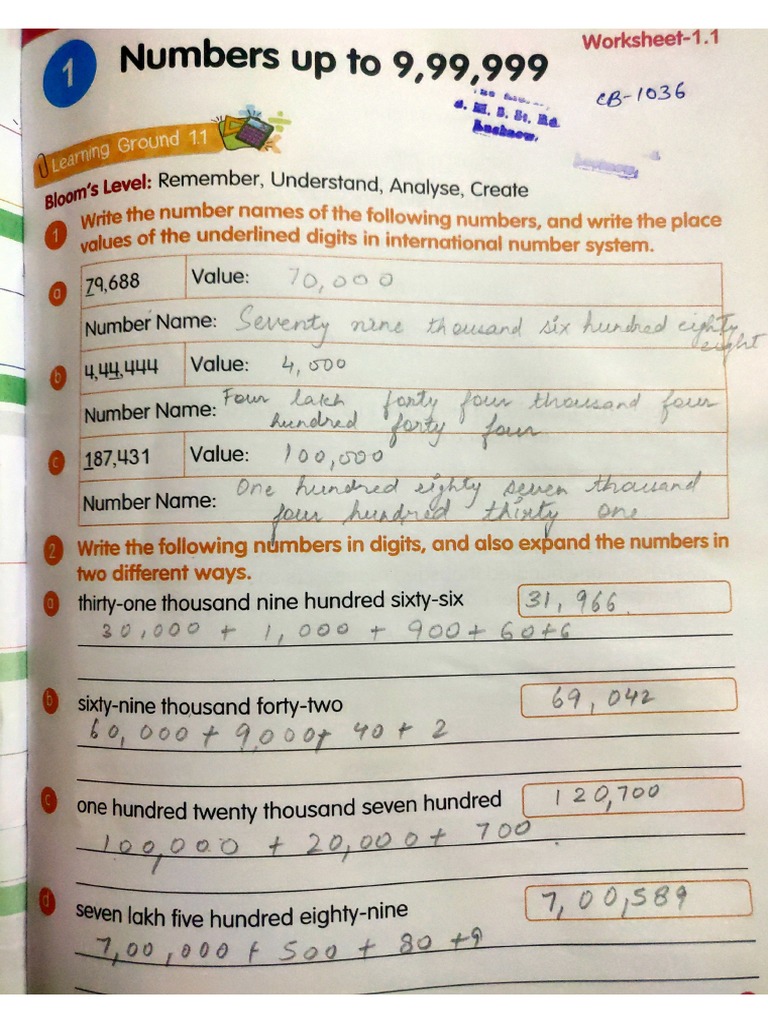 Worksheet-1.1
1 Numbers up to 9,99,999
CB-1036
Lucknow.
Learning Ground 1.1
Bloom's Level: Remember, Understand, Analyse, Create
1 Write the number names of the following numbers, and write the place
values of the underlined digits in international number system.
a 79,688 Value: 70,000
Number Name: Seventy nine thousand six hundred eighty
eight
b 4,44,444 Value: 4,000
Number Name: Four lakh forty four thousand four
hundred forty four
c 187,431 Value: 100,000
Number Name: One hundred eighty seven thousand
four hundred thirty one
2 Write the following numbers in digits, and also expand the numbers in
two different ways.
a thirty-one thousand nine hundred sixty-six 31,966.
30,000 + 1,000 + 900 + 60+6
b sixty-nine thousand forty-two 69,042
60,000 + 9,000+ 40 + 2
c one hundred twenty thousand seven hundred 120,700
100,000 + 20,000 + 700.
d seven lakh five hundred eighty-nine 7,00,589
7,00,000 + 500 + 80 +9